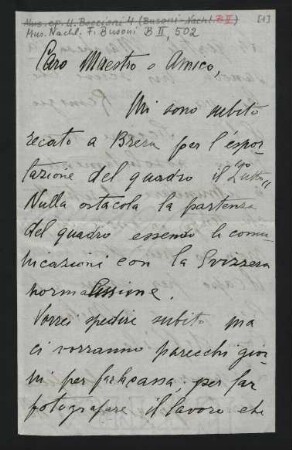 Mus. ep. U. Boccioni 4 (Busoni-Nachl. B II) [1]
Mus. Nachl. F. Busoni B II, 502
Caro Maestro e Amico,
Mi sono subito
recato a Brera per l'espor-
tazione del quadro il
Nulla ostacola la partenza
del quadro essendo le comu-
nicazioni con la Svizzera
normalissime.
Vorrei spedire subito ma
ci vorranno parecchi gior-
ni per far
fotografare il lavoro che